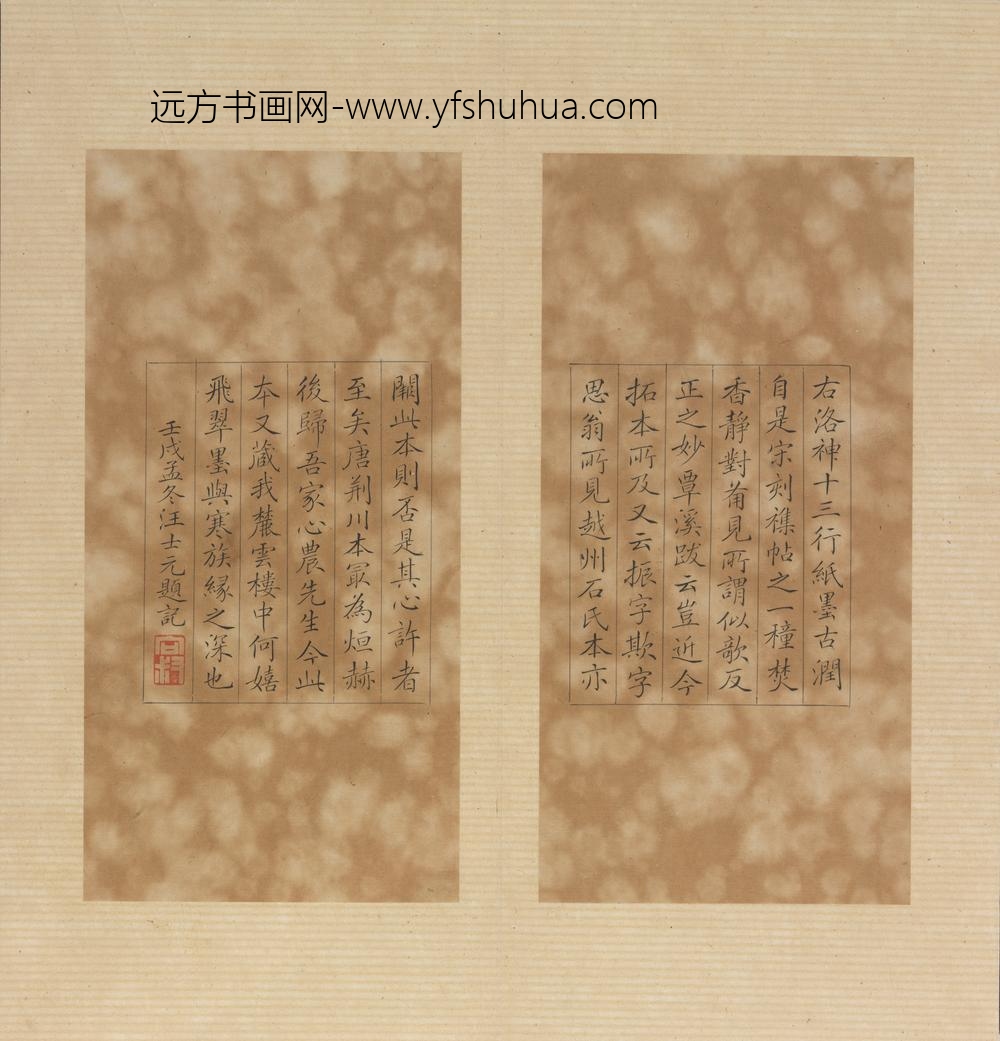 远方书画网-www.yfshuhua.com
右洛神十三行紙墨古潤
自是宋刻襍帖之一種焚
香靜對莆見所謂似欹反
正之妙覃溪跋云豈近今
拓本所及又云振字欺字
思翁所見越州石氏本亦
闕此本則否是其心許者
至矣唐荆川本冣為烜赫
後歸吾家心農先生今此
本又蔵我麓雲樓中何嬉
飛翠墨與寒族緣之深也
壬戌孟冬汪士元題記